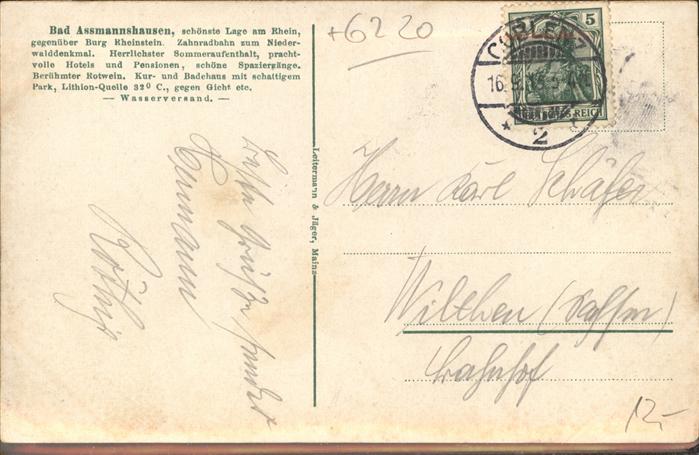 Bad Assmannshausen, schönste Lage am Rhein,
gegenüber Burg Rheinstein. Zahnradbahn zum Nieder-
walddenkmal. Herrlichster Sommeraufenthalt, pracht-
volle Hotels und Pensionen, schöne Spaziergänge.
Berühmter Rotwein. Kur- und Badehaus mit schattigem
Park, Lithion-Quelle 32⁰ C., gegen Gicht etc.
— Wasserversand. —
+6220
5
COBLEN
16.
* 2
S REICH
Leitermann & Jäger, Mainz
Beste Grüße sendet
Hermann
Herrn Karl Schäfer
Wilthen (Sachsen)
Bahnhof
12,-